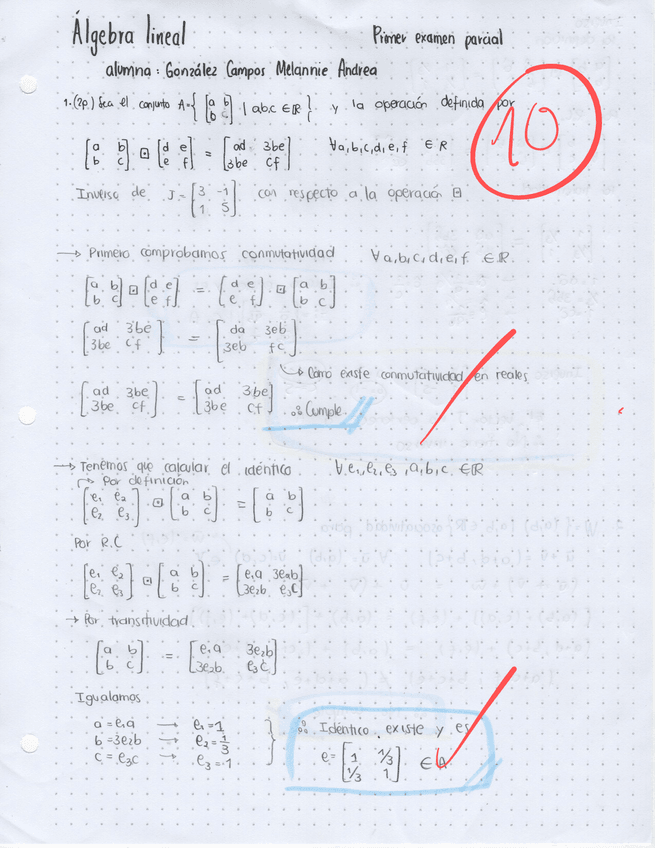 Álgebra lineal Primer examen parcial
alumna: González Campos Melannie Andrea
10
1.(2p) Sea el conjunto A={ [a b; b c] | a,b,c ∈ ℝ } y la operación definida por
[a b; b c] ⊡ [d e; e f] = [ad 3be; 3be cf] ∀a,b,c,d,e,f ∈ ℝ
Inverso de J = [3 -1; 1 5] con respecto a la operación ⊡
→ Primero comprobamos conmutatividad ∀a,b,c,d,e,f ∈ ℝ
[a b; b c] ⊡ [d e; e f] = [d e; e f] ⊡ [a b; b c]
[ad 3be; 3be cf] = [da 3eb; 3eb fc]
↳ Como existe conmutatividad en reales
[ad 3be; 3be cf] = [ad 3be; 3be cf] ∴ Cumple
→ Tenemos que calcular el idéntico ∀e₁,e₂,e₃,a,b,c ∈ ℝ
↱ Por definición
[e₁ e₂; e₂ e₃] ⊡ [a b; b c] = [a b; b c]
Por R.C
[e₁ e₂; e₂ e₃] ⊡ [a b; b c] = [e₁a 3e₂b; 3e₂b e₃c]
→ Por transitividad
[a b; b c] = [e₁a 3e₂b; 3e₂b e₃c]
Igualamos
a = e₁a → e₁ = 1
b = 3e₂b → e₂ = 1/3
c = e₃c → e₃ = 1
} ∴ Idéntico existe y es
e = [1 1/3; 1/3 1] ∈ A